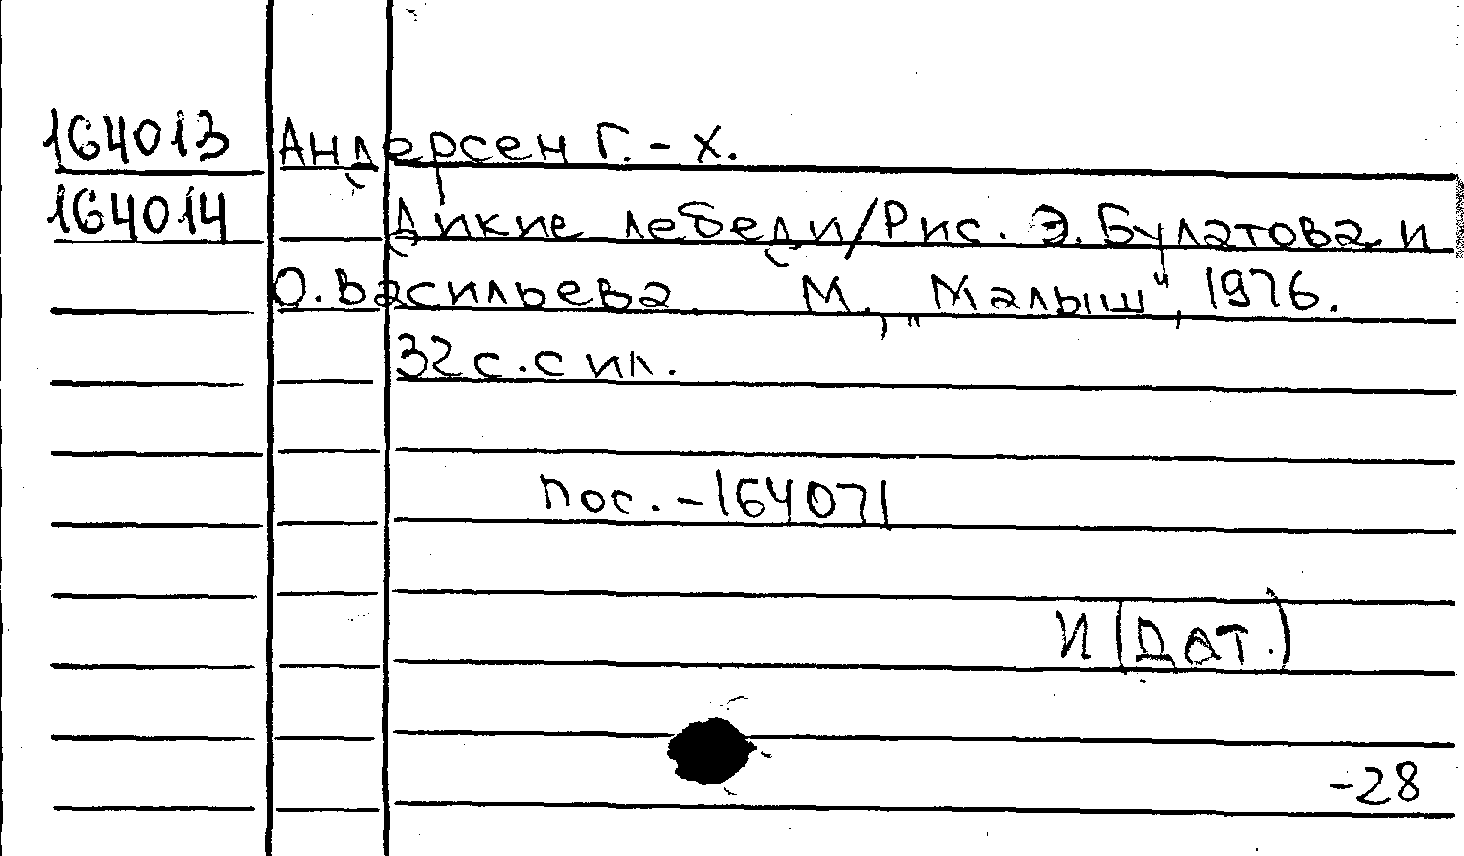 164013 Андерсен Г.-Х.
164014 Дикие лебеди/Рис. Э. Булатова и
О. Васильева М., „Малыш", 1976.
32 с. с ил.
пос. - 164071
И (Дат.)
-28